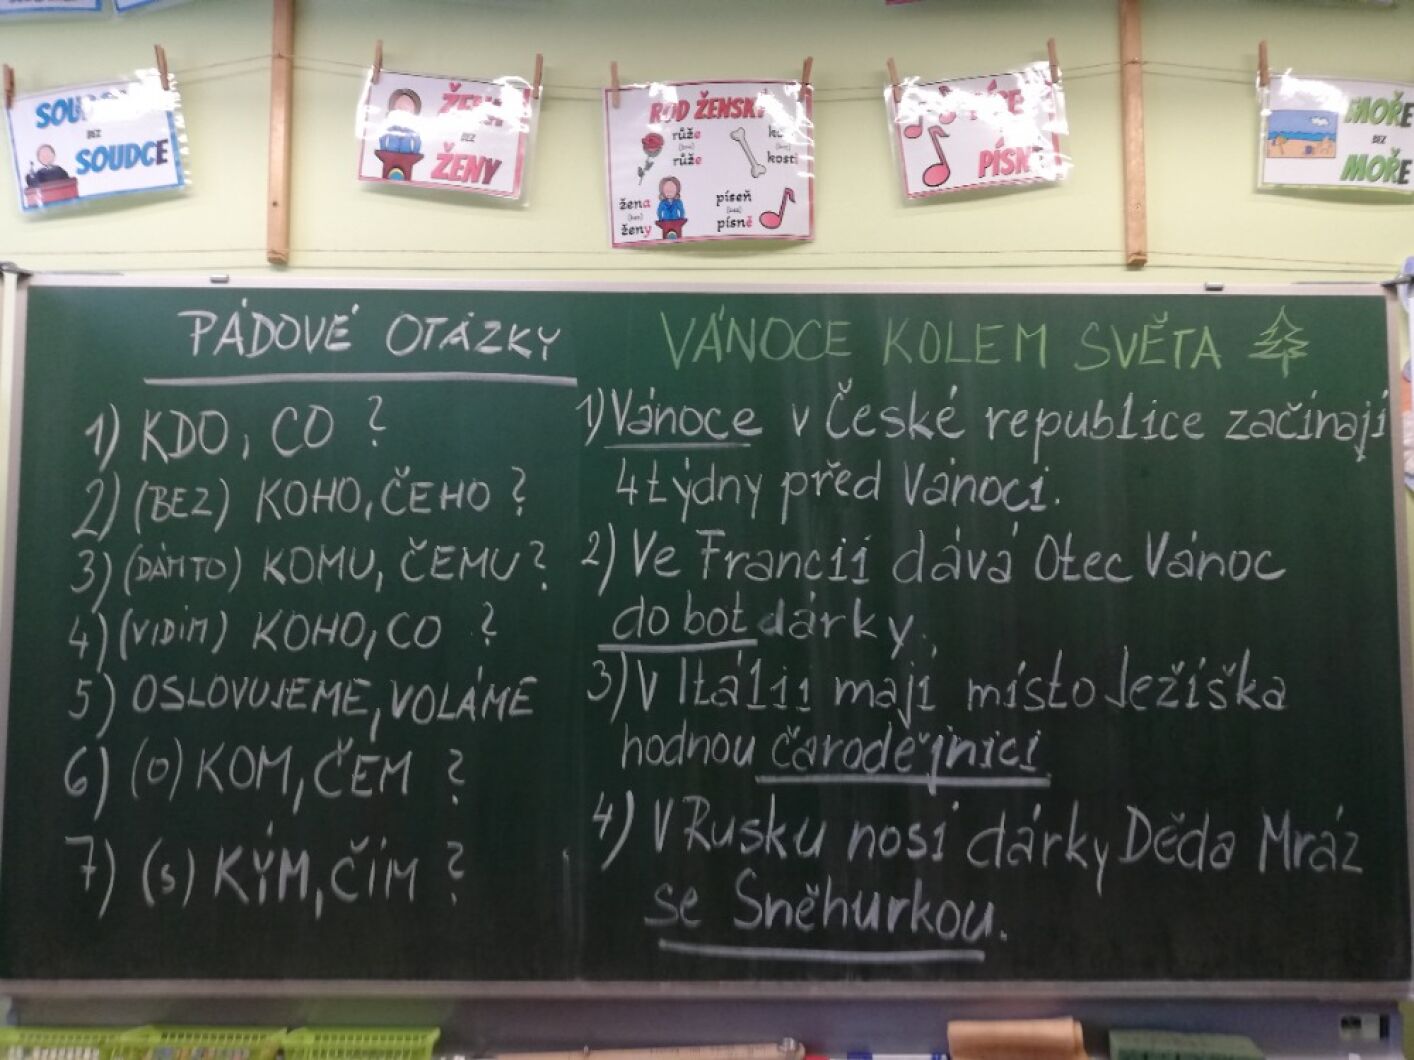 SOUDCE
BEZ
SOUDCE
BEZ
ŽENY
ROD ŽENSKÝ
růže
(bez)
růže
kosti
žena
(bez)
ženy
píseň
(bez)
písně
MOŘE
BEZ
MOŘE
PÁDOVÉ OTÁZKY
1) KDO, CO ?
2) (BEZ) KOHO, ČEHO ?
3) (DÁM TO) KOMU, ČEMU ?
4) (VIDÍM) KOHO, CO ?
5) OSLOVUJEME, VOLÁME
6) (O) KOM, ČEM ?
7) (S) KÝM, ČÍM ?
VÁNOCE KOLEM SVĚTA
1) Vánoce v České republice začínají
4 týdny před Vánoci.
2) Ve Francii dává Otec Vánoc
do bot dárky.
3) V Itálii mají místo Ježíška
hodnou čarodějnici
4) V Rusku nosí dárky Děda Mráz
se Sněhurkou.